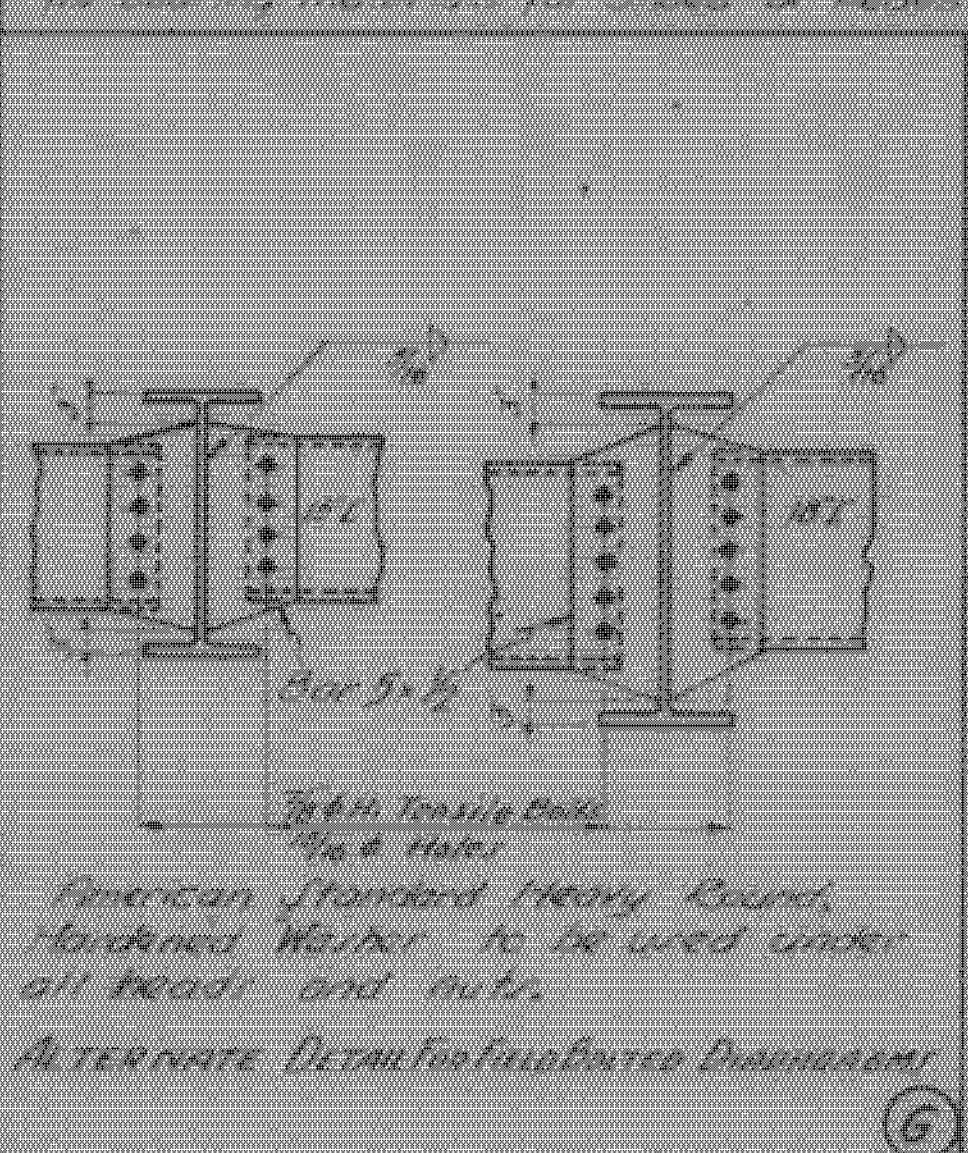 5/16
5/16
3"
3"
15[
18[
Bar 5 x 1/2
3"
3"
7/8 ϕ H. Tensile Bolts
15/16 ϕ Holes
American Standard Heavy Round,
Hardened Washer to be used under
all heads and nuts.
ALTERNATE DETAIL FOR FIELD BOLTED DIAPHRAGMS
G